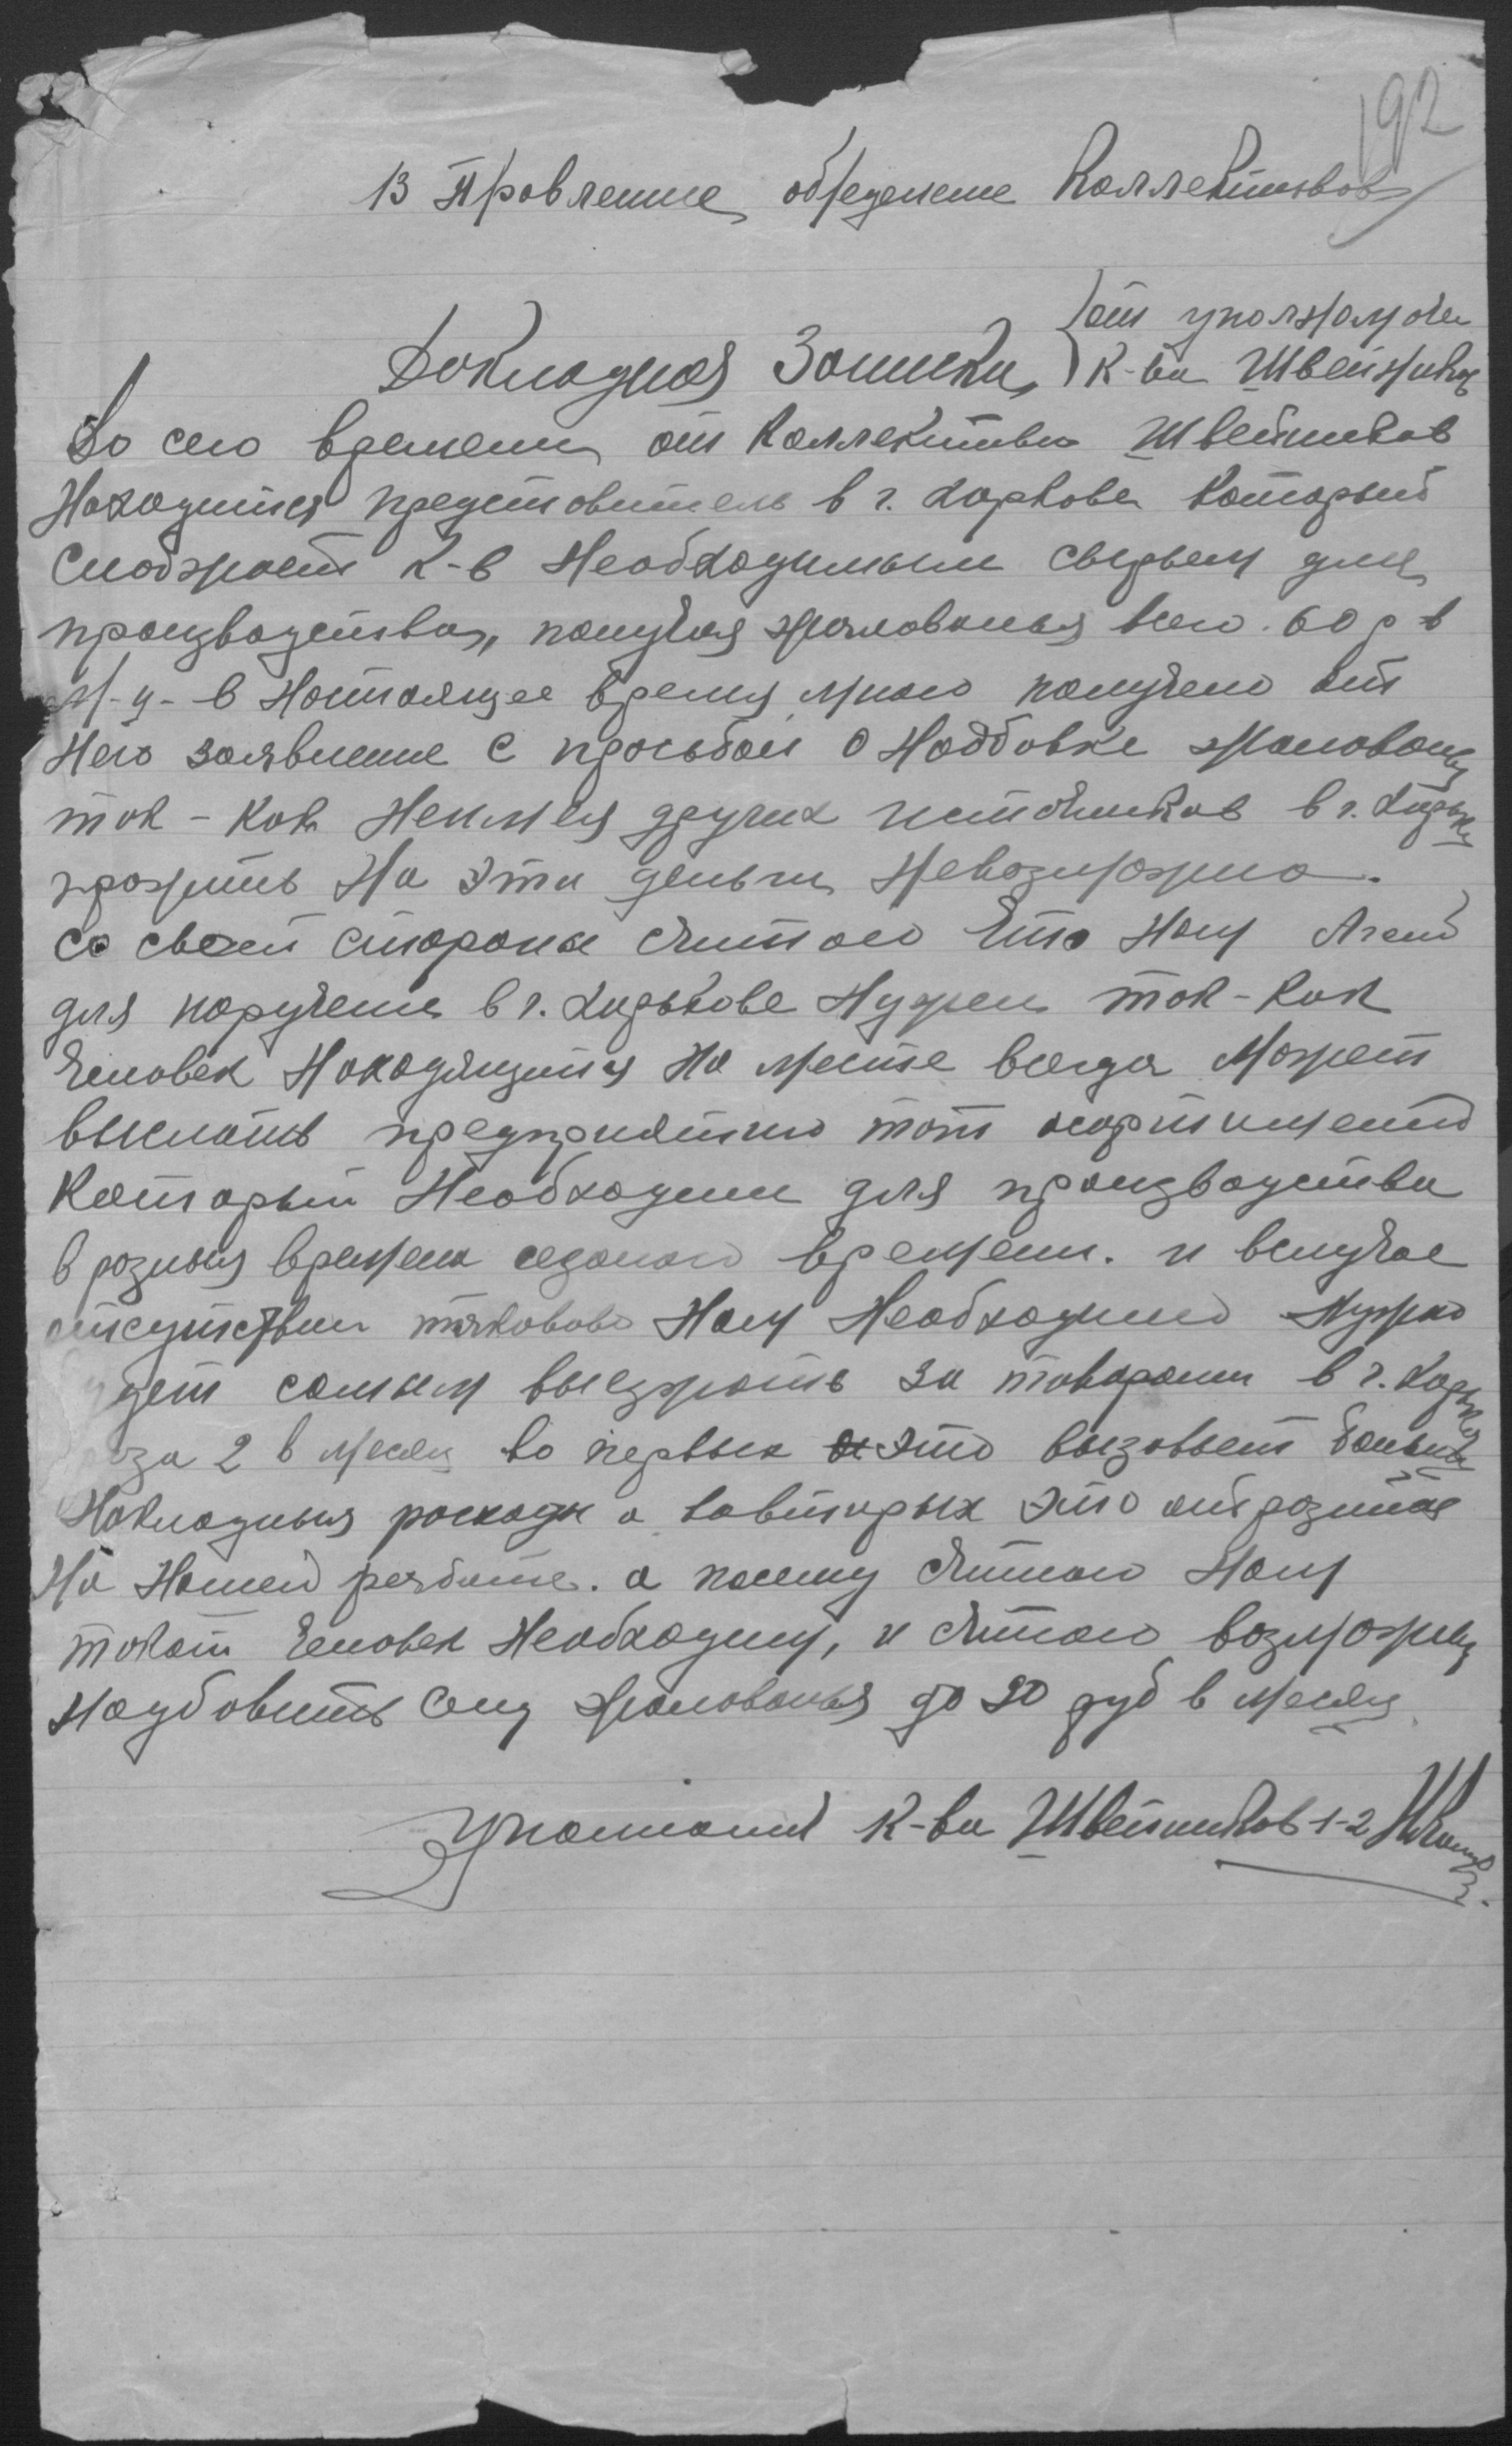 192
В Провление обједенение Коллективов
от уполномоч
К-ва Швейников
Докладная Записка
До сего времени от Коллектива Швейников
Находится представитель в г. Харкове который
снабжает К-в Необходимым сырьем для
производства, получая жалованья всего 60 р в
м-ц - в Настоящее время мною получено от
Него заявление с просьбой о Наддбовке жалованья
так - как Неимея других источников в г. Харьк
прожить На эти деньги Невозможно.
Со своей стороны считаю что Нам Агент
для поручени в г. Харькове Нужен так - как
человек Находящится На месте всегда может
выслать предприятию тот асортимент
который Необходим для производства
в розныя времена сезоного времени. и вслучае
отсуствии таковово Нам Необходимо Нужно
дет самим выезжать за товарами в г. Харьк
за 2 в месяц во первых это вызовет больш
Накладныя росходы а вовторых это отрозится
На Нашей рработе. а посему считаю Нам
такой человек Необходим, и считаю возможным
Надбовить ему жалованья до 90 руб в месяц
Уполномоч К-ва Швейников 1-2